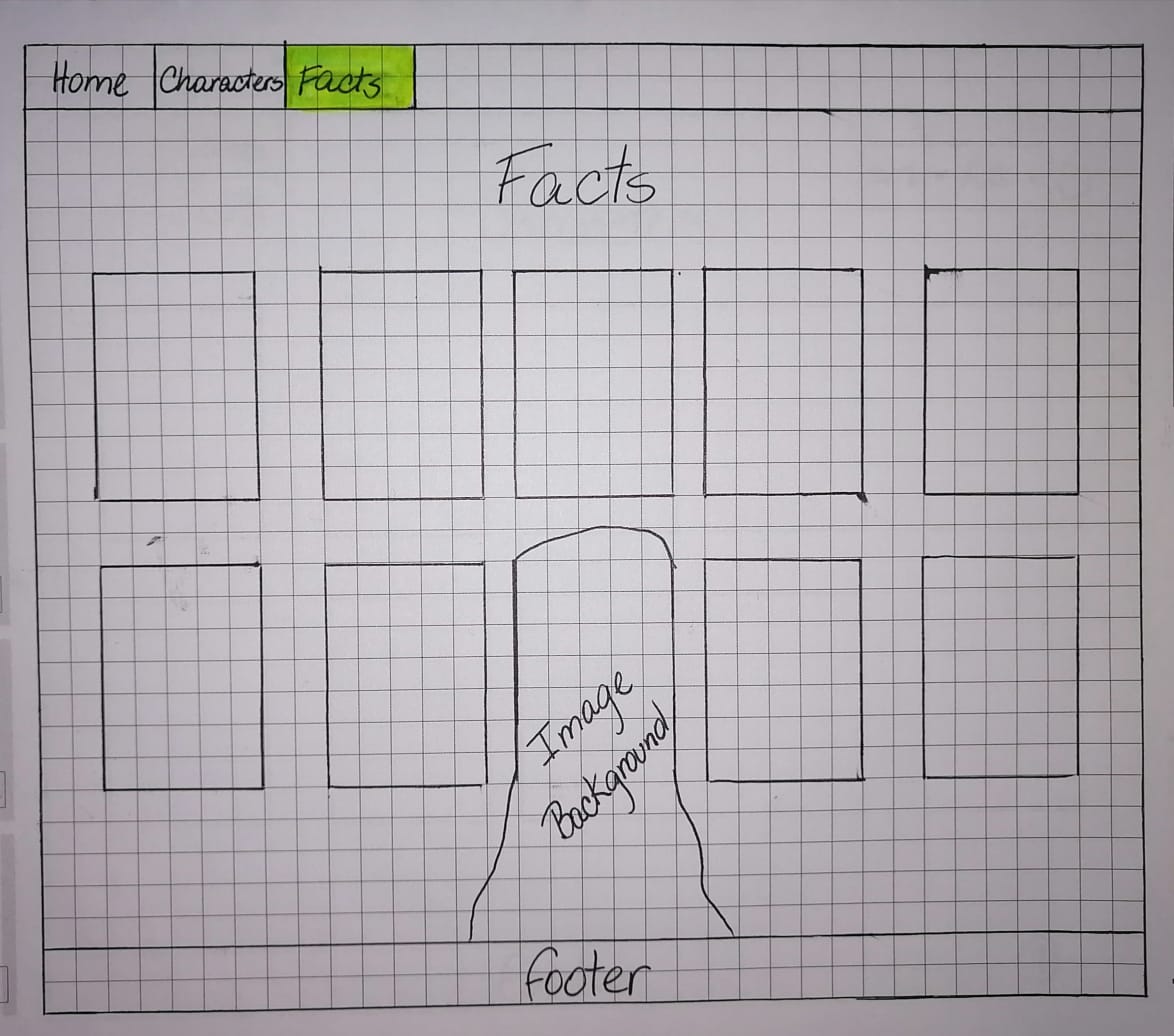 Home Characters Facts
Facts
Image
Background
footer